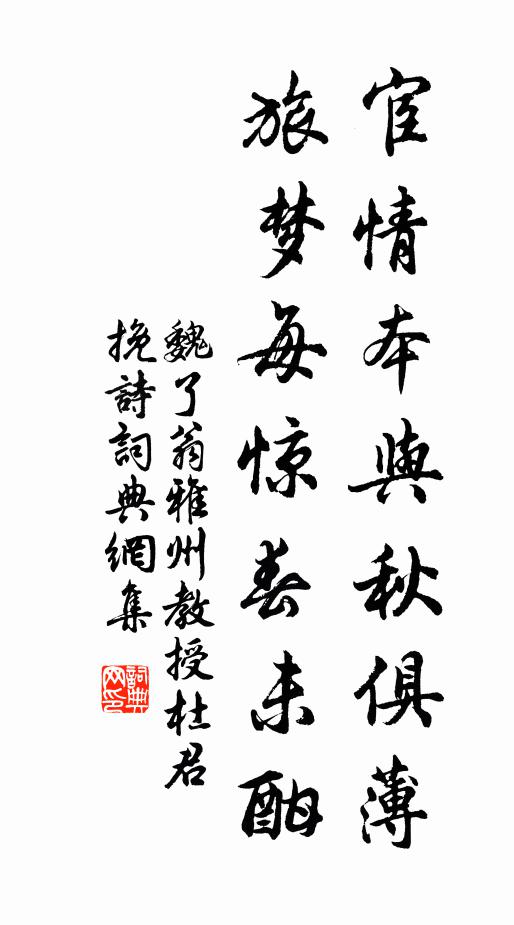 宦情本與秋俱薄
旅梦每惊春未酣
魏了翁雅州教授杜君
挽詩詞典網集
詞典网印